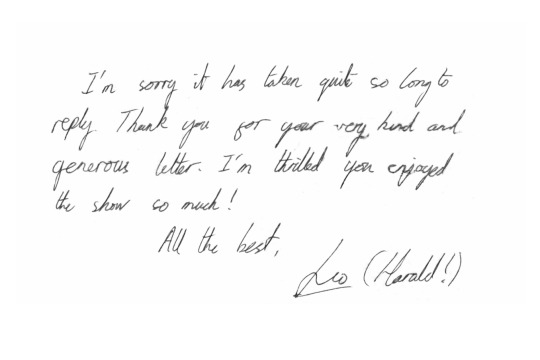 I'm sorry it has taken quite so long to
reply. Thank you for your very kind and
generous letter. I'm thrilled you enjoyed
the show so much!
All the best,
Leo (Harald!)